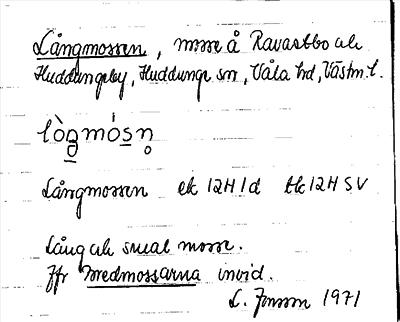 Långmossen, mosse å Ravastbo och
Huddungeby, Huddunge sn, Våla hd, Västm. l.
lò̱ŋmósn̥
Långmossen ek 12H 1d tk 12H SV
Lång och smal mosse.
Jfr Bredmossarna invid.
L. Jonsson 1971